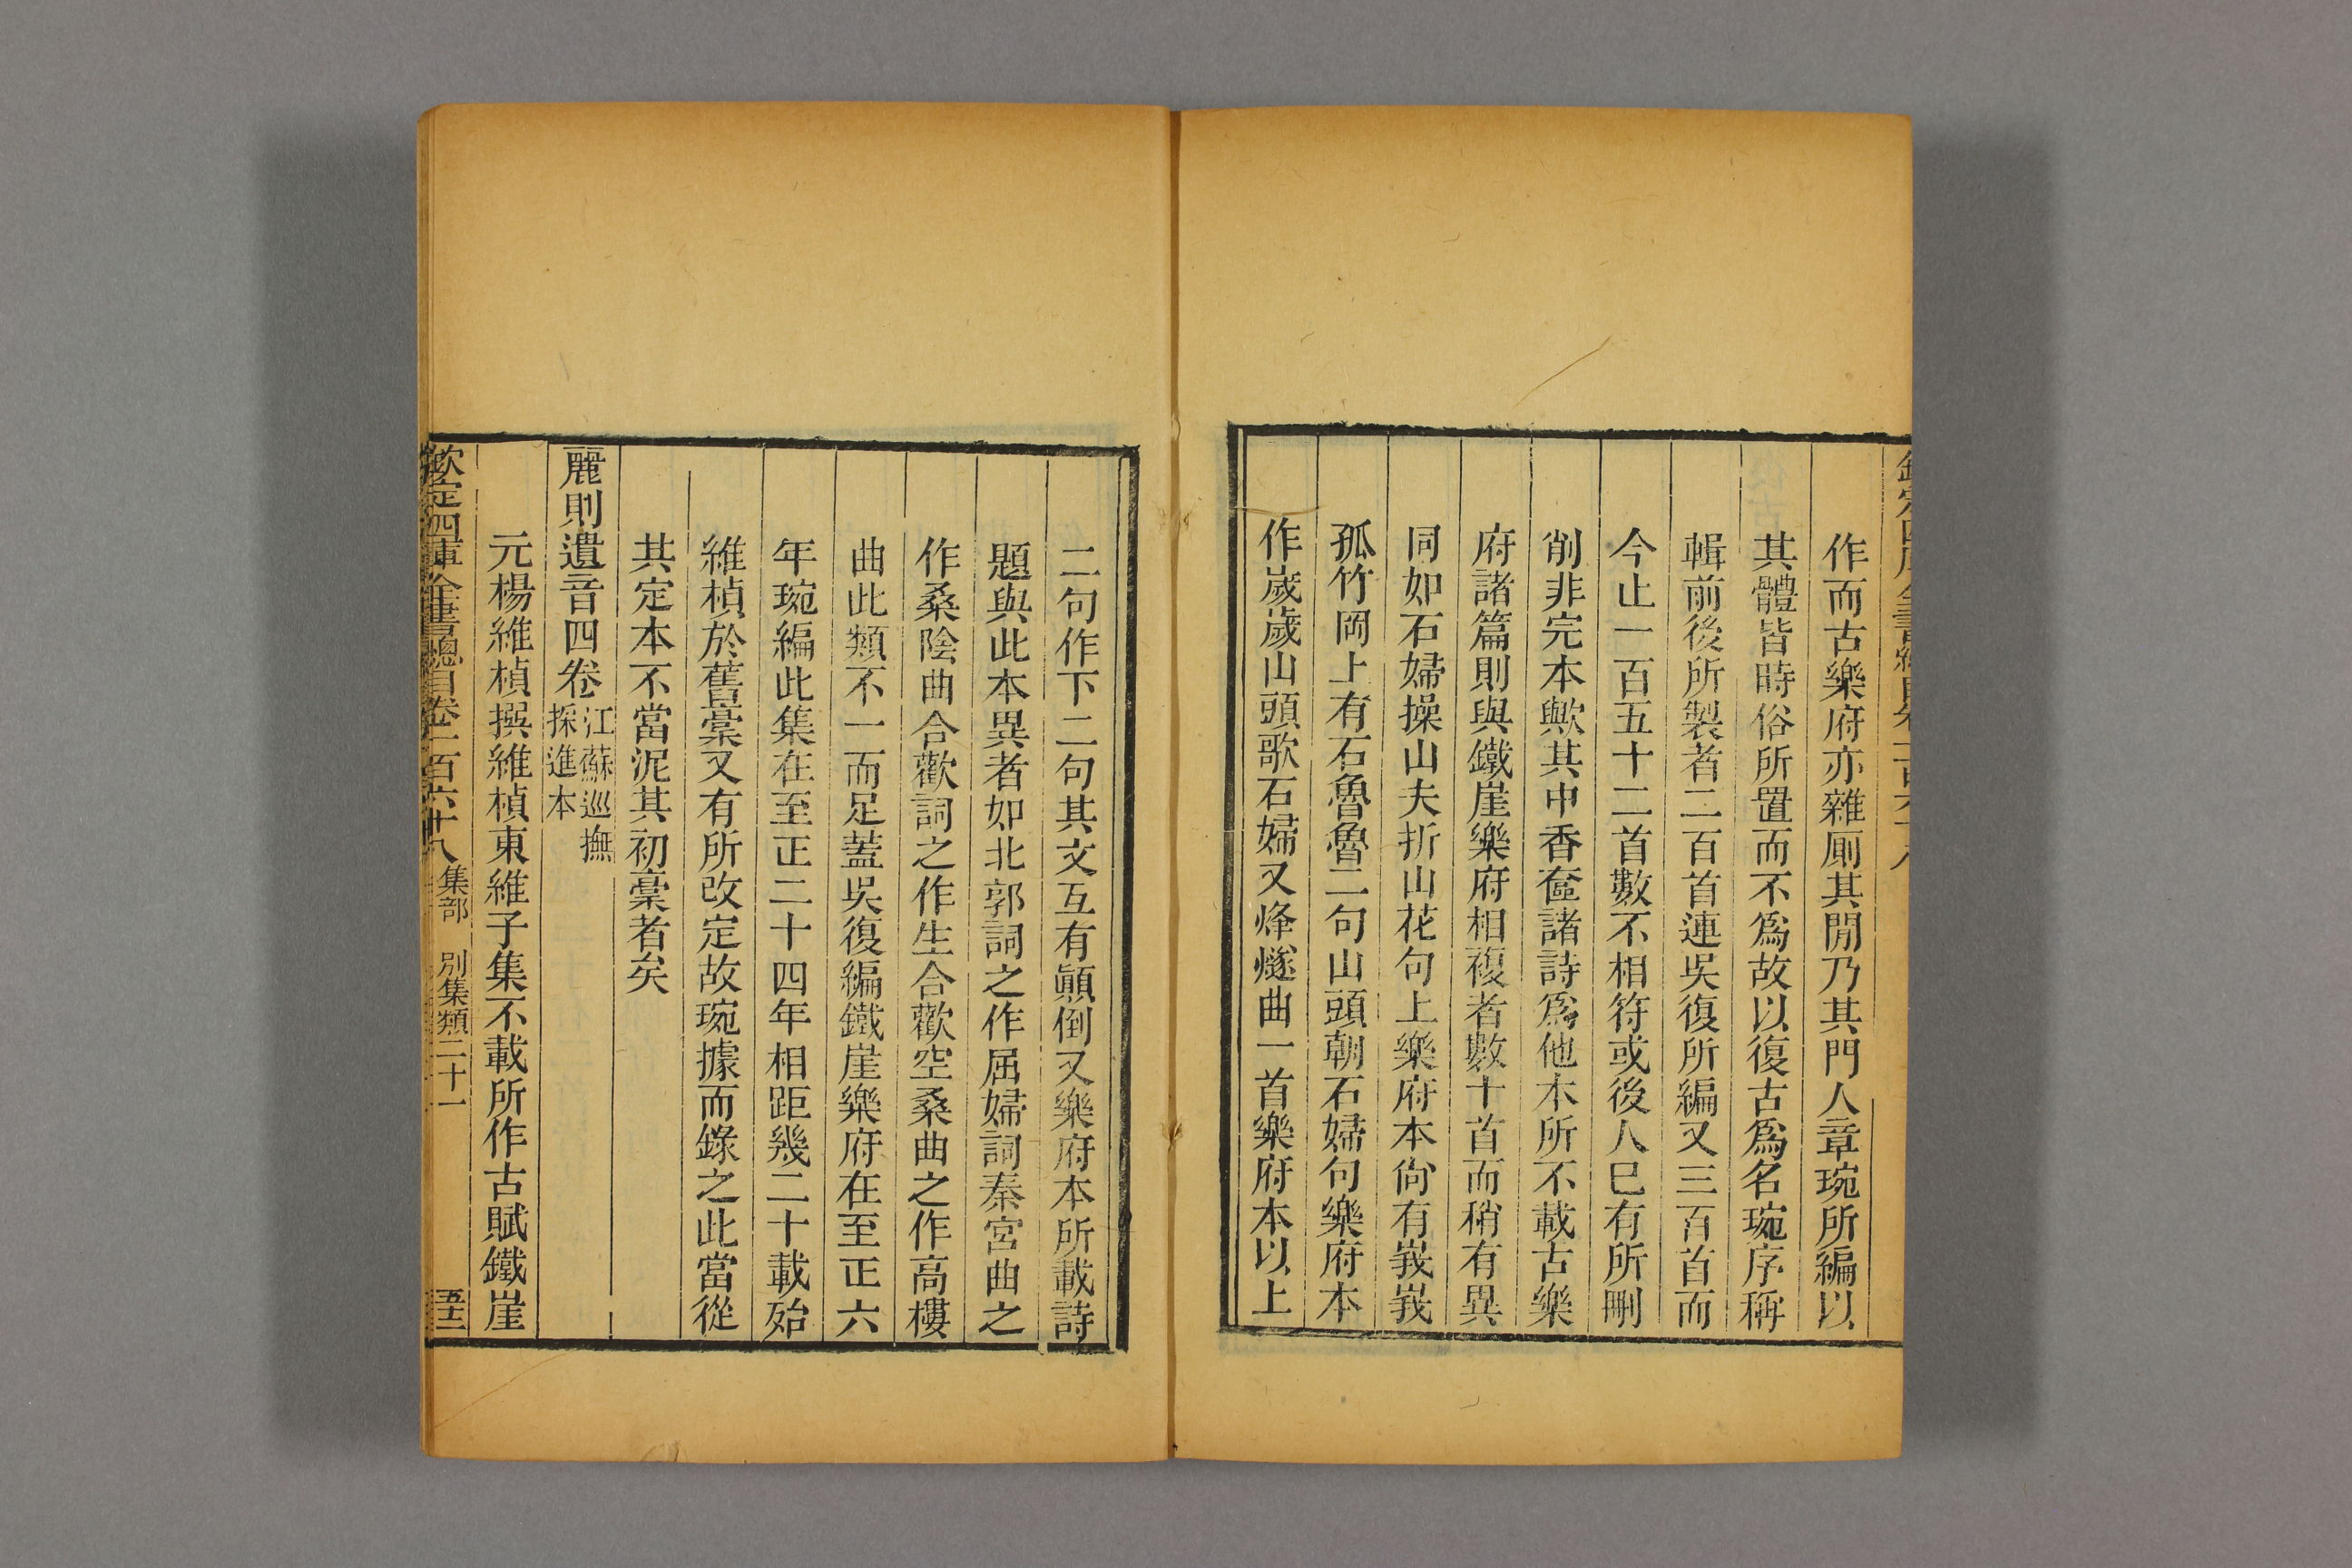 作而古樂府亦雜廁其閒乃其門人章琬所編以
其體皆時俗所置而不爲故以復古爲名琬序稱
輯前後所製者二百首連吳復所編又三百首而
今止一百五十二首數不相符或後人已有所刪
削非完本歟其中香奩諸詩爲他本所不載古樂
府諸篇則與鐵崖樂府相複者數十首而稍有異
同如石婦操山夫折山花句上樂府本尙有峩峩
孤竹岡上有石魯魯二句山頭朝石婦句樂府本
作歲歲山頭歌石婦又烽燧曲一首樂府本以上
二句作下二句其文互有顚倒又樂府本所載詩
題與此本異者如北郭詞之作屈婦詞秦宮曲之
作桑陰曲合歡詞之作生合歡空桑曲之作高樓
曲此類不一而足蓋吳復編鐵崖樂府在至正六
年琬編此集在至正二十四年相距幾二十載殆
維楨於舊稾又有所改定故琬據而錄之此當從
其定本不當泥其初稾者矣
麗則遺音四卷江蘇巡撫
採進本
元楊維楨撰維楨東維子集不載所作古賦鐵崖
欽定四庫全書總目卷一百六十八 集部 別集類二十一